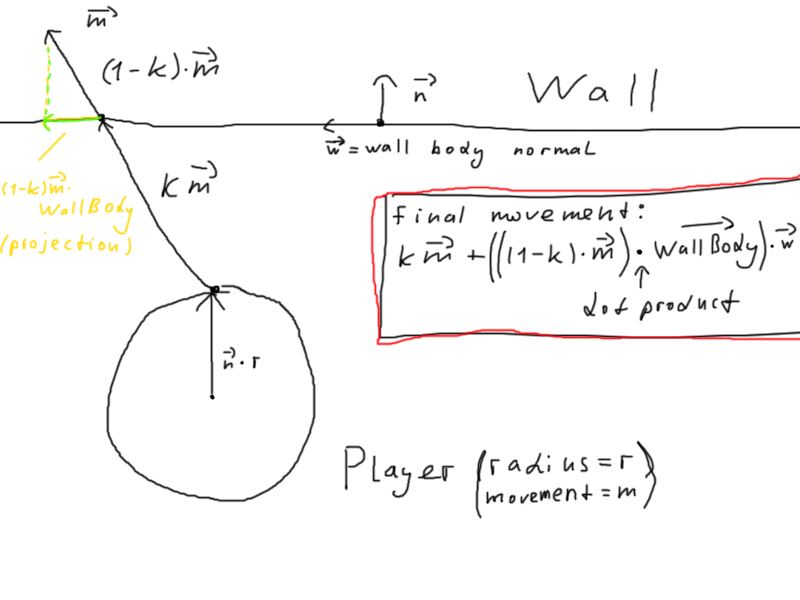 m⃗
(1-k)·m⃗
n⃗
Wall
w⃗ = wall body normal
k m⃗
(1-k)m⃗·
WallBody
(projection)
final movement:
k m⃗ + (((1-k)·m⃗)·WallBody)·w⃗
dot product
n⃗·r
Player (radius=r
movement=m)